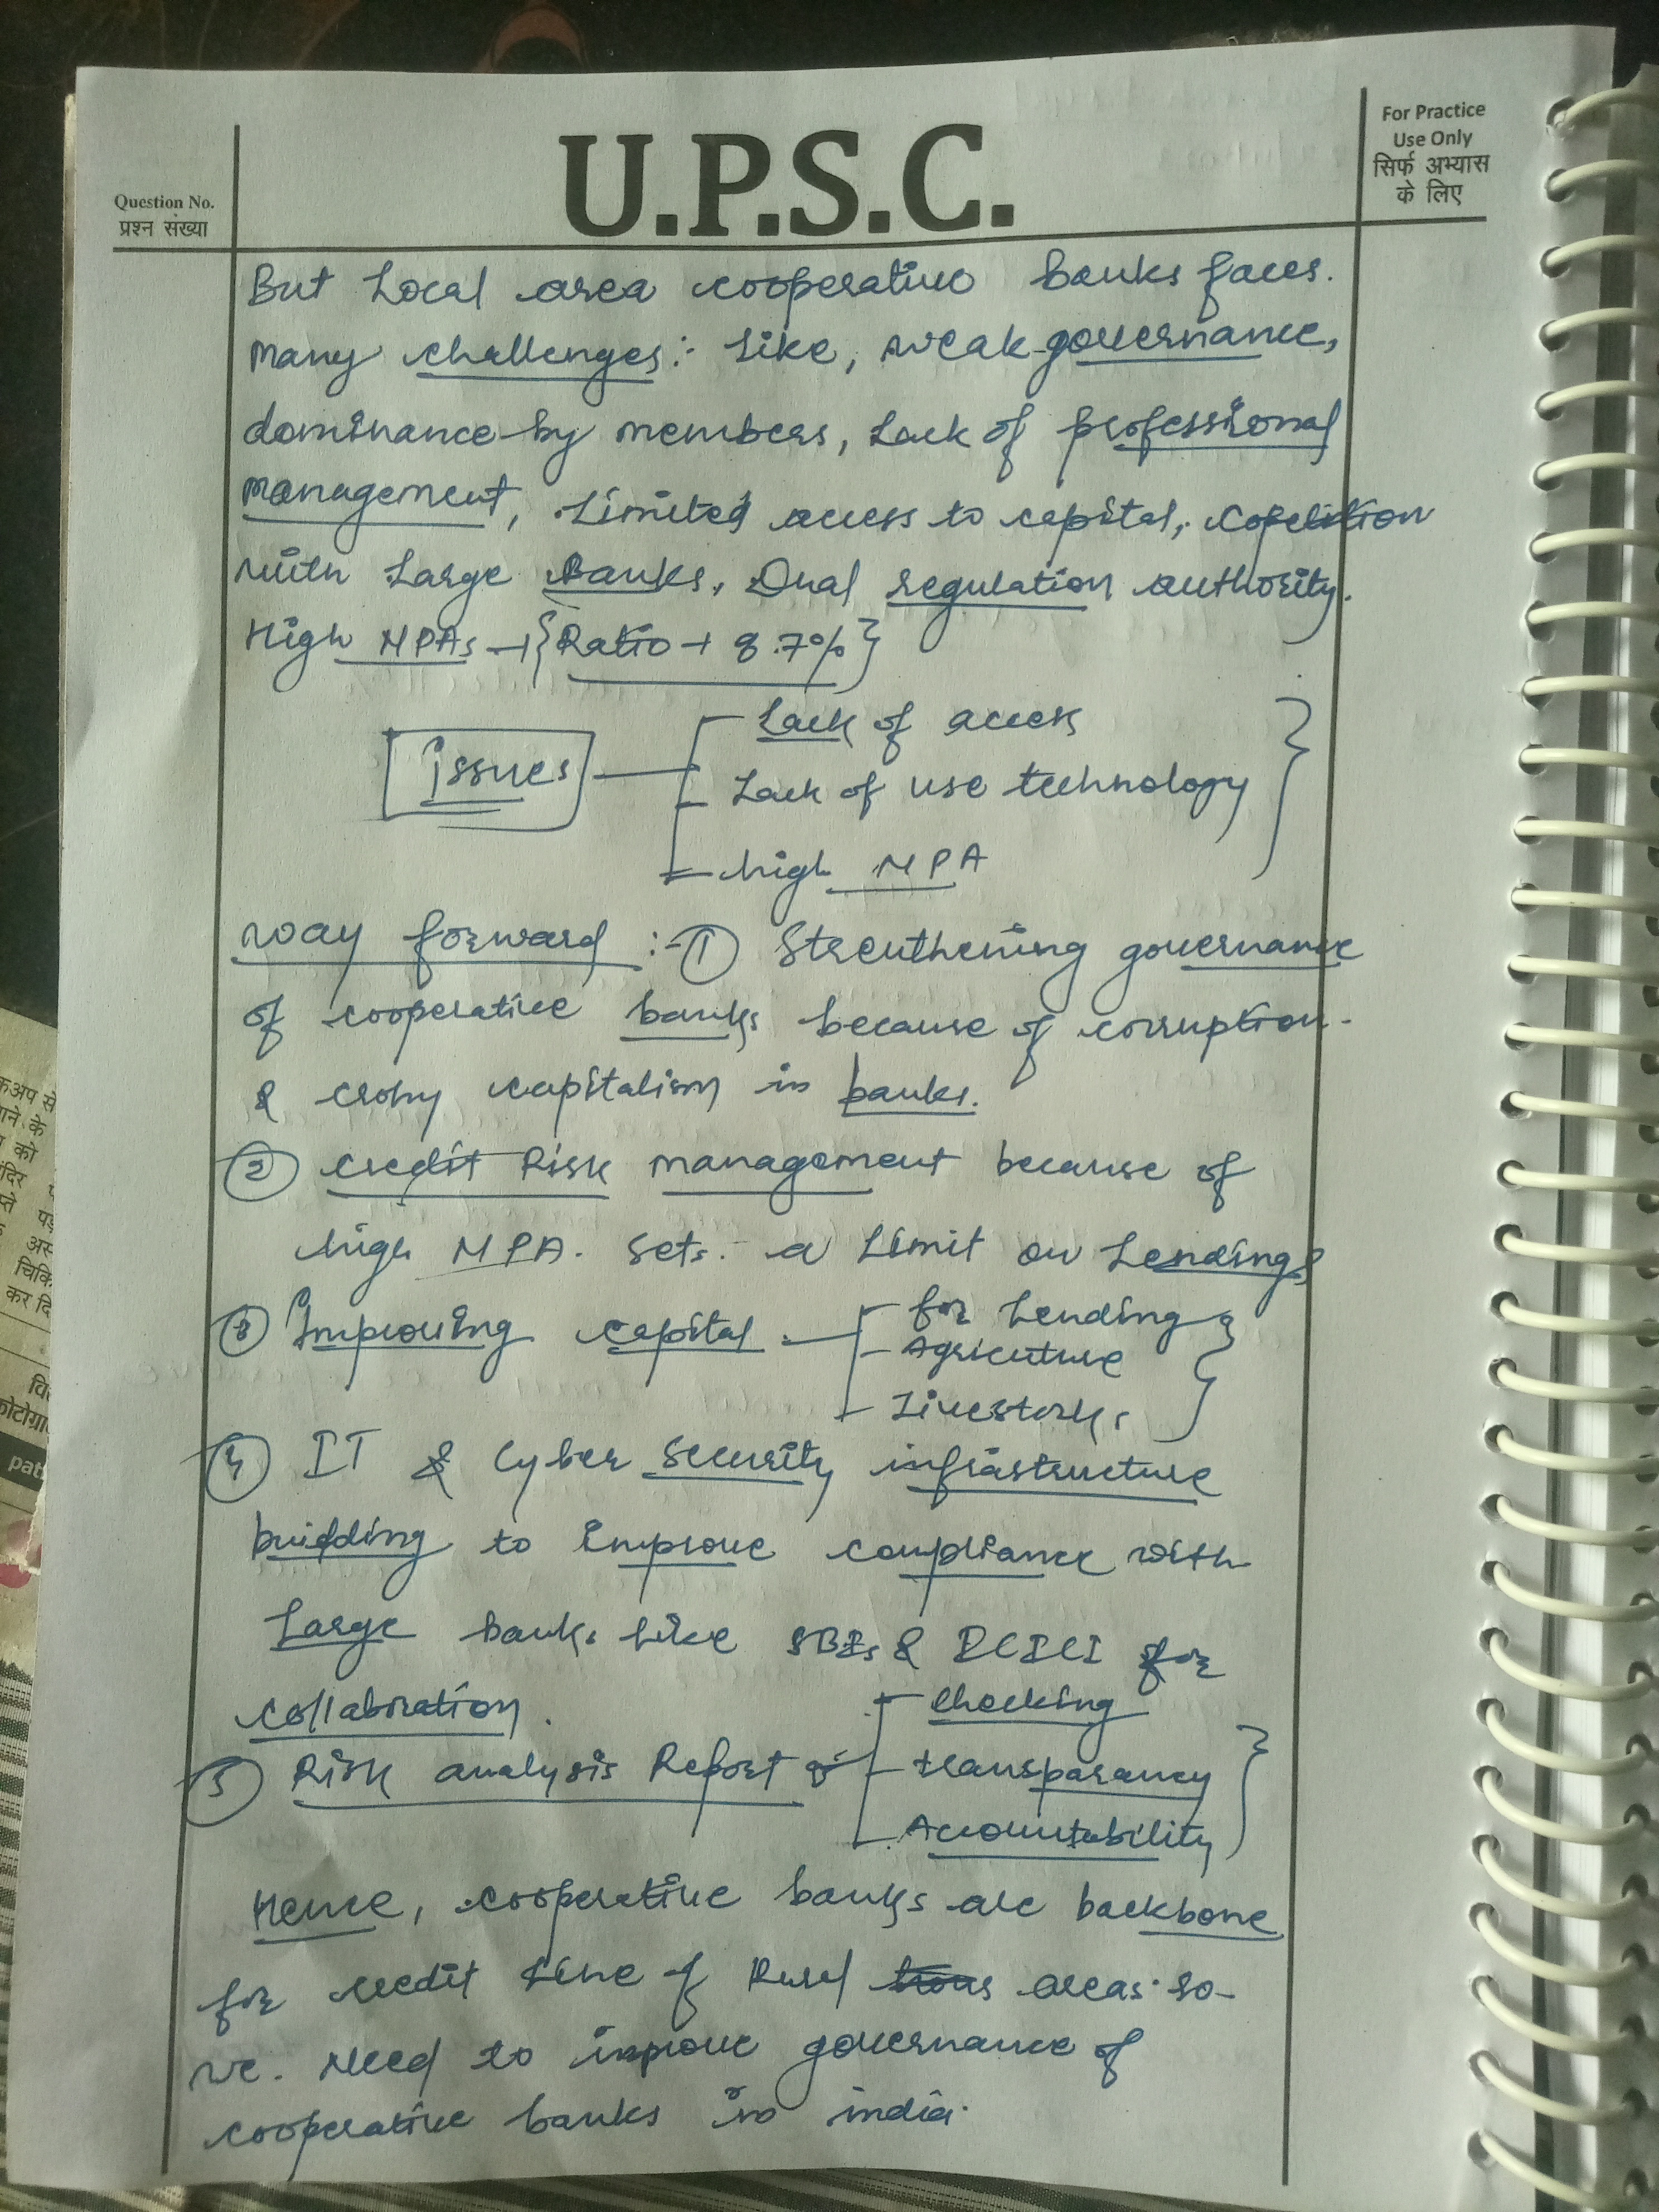 For Practice
Use Only
सिर्फ अभ्यास
के लिए
U.P.S.C.
Question No.
प्रश्न संख्या
But Local area cooperative banks faces.
Many challenges:- Like, weak governance,
dominance by members, Lack of professional
management, Limited access to capital,
with Large Banks, Dual regulation authority.
High NPAs → {Ratio → 8.7%}
Issues
Lack of access
Lack of use technology
high NPA
way forward :- ① Strenthening governance
of cooperative banks because of corruption
& crony capitalism in banks.
② credit Risk management because of
high NPA. Sets a limit on Lendings
③ Improving capital
for Lending
Agricuture
Livestocks
④ IT & Cyber security infrastructure
building to improve compliance with
Large banks like SBIs & ICICI for
collabration.
⑤ Risk analysis Report of
Checking
transparancy
Accountability
Hence, cooperative banks are backbone
for credit line of Rural areas. so
we. need to improve governance of
cooperative banks in india.
कअप से
को
चिकि
कर दि